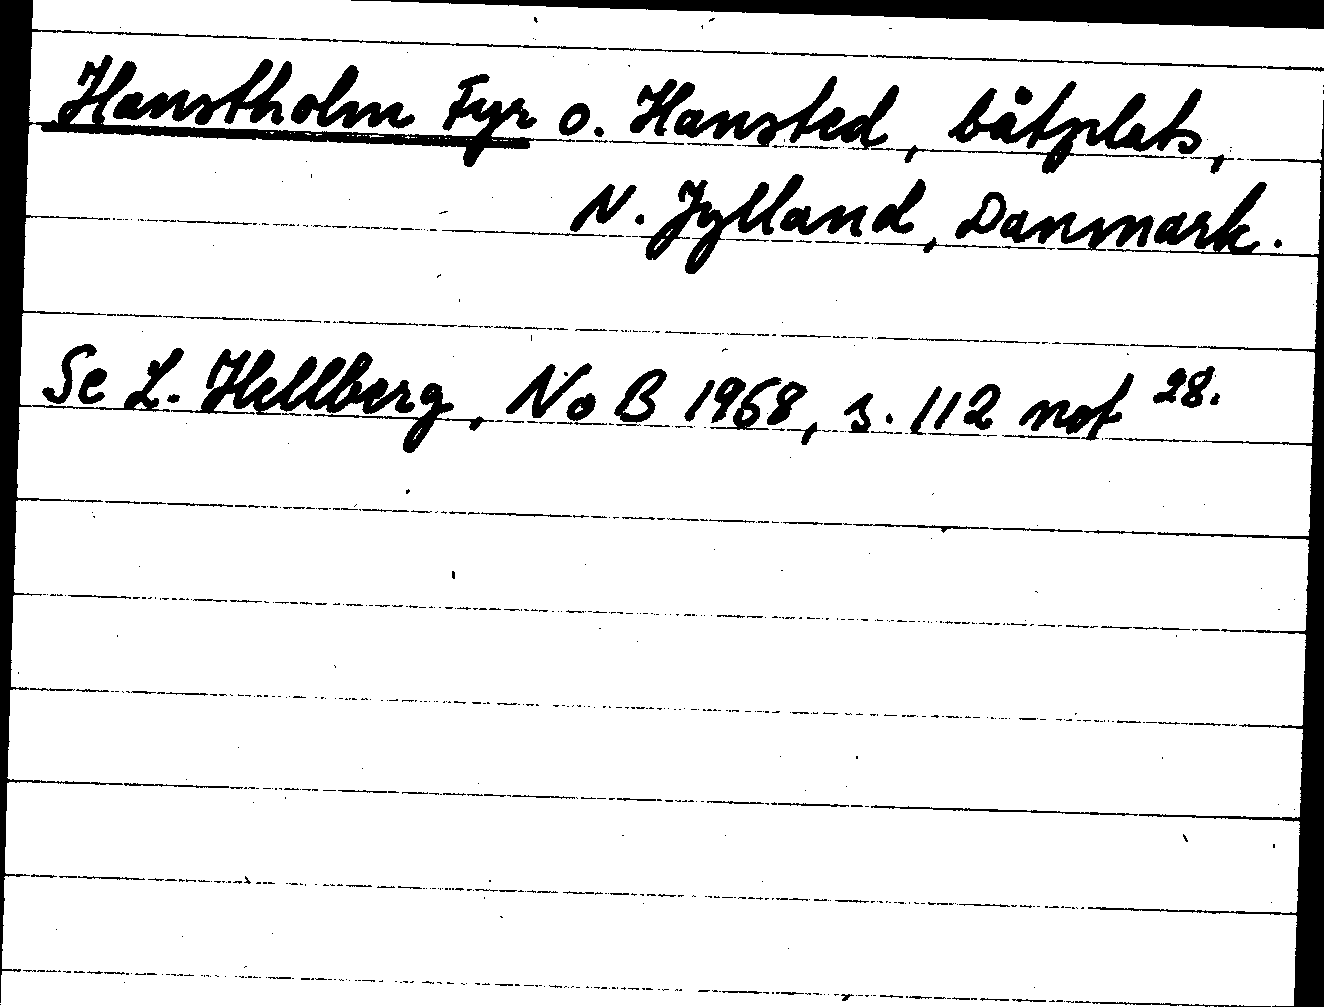 Hanstholm Fyr o. Hansted, båtplats,
N. Jylland, Danmark.
Se L. Hellberg, NoB 1968, s. 112 not 28.